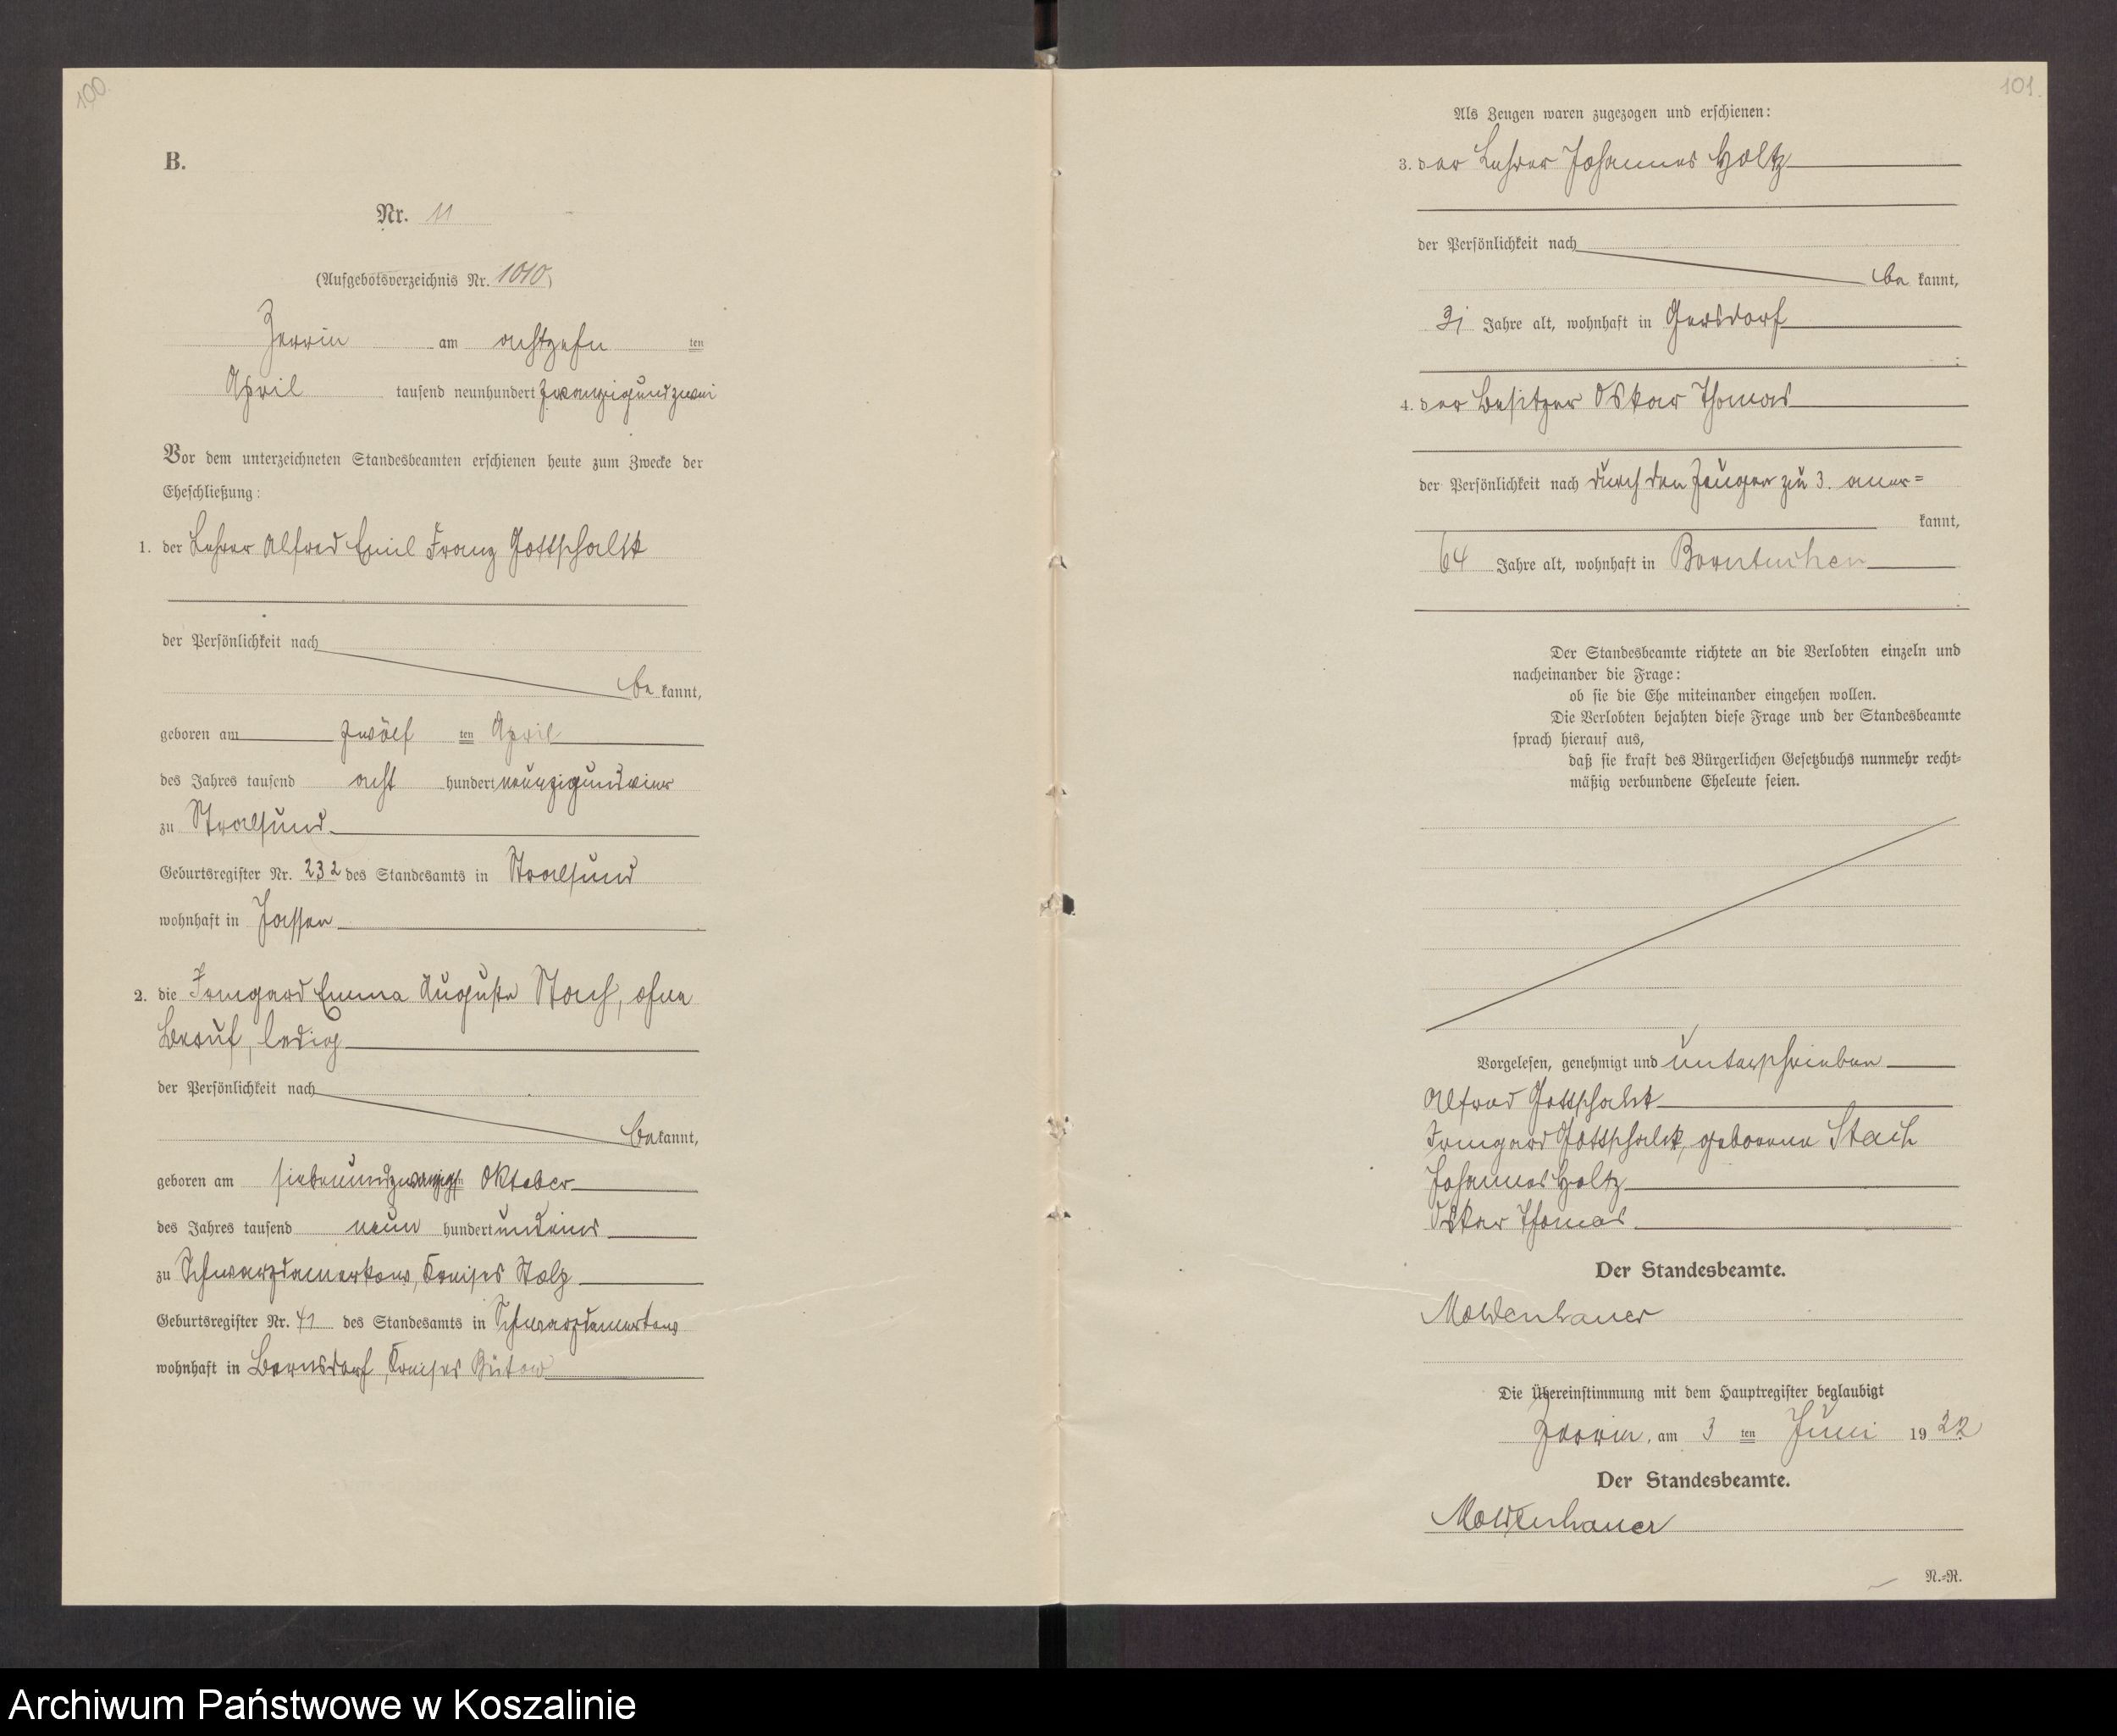 100.
B.
Nr. 11
(Aufgebotsverzeichnis Nr. 1010)
Zerrin am achtzehn ten
April tausend neunhundert zwanzigundzwei
Vor dem unterzeichneten Standesbeamten erschienen heute zum Zwecke der
Eheschließung:
1. der Lehrer Alfred Emil Franz Gottschalk
der Persönlichkeit nach
be kannt,
geboren am zwölf ten April
des Jahres tausend acht hundert neunzigundvier
zu Stralsund
Geburtsregister Nr. 232 des Standesamts in Stralsund
wohnhaft in Jassen
2. die Irmgard Emma Auguste Stach, ohne
Beruf, ledig
der Persönlichkeit nach
be kannt,
geboren am siebenundzwanzigsten Oktober
des Jahres tausend neun hundert undeins
zu Schwarzdamerkow, Kreises Stolp
Geburtsregister Nr. 41 des Standesamts in Schwarzdamerkow
wohnhaft in Bernsdorf, Kreises Bütow
101.
Als Zeugen waren zugezogen und erschienen:
3. der Lehrer Johannes Holtz
der Persönlichkeit nach
be kannt,
31 Jahre alt, wohnhaft in Gersdorf
;
4. der Besitzer Oskar Thomas
der Persönlichkeit nach durch den Zeugen zu 3. aner=
kannt,
64 Jahre alt, wohnhaft in Borntuchen
.
Der Standesbeamte richtete an die Verlobten einzeln und
nacheinander die Frage:
ob sie die Ehe miteinander eingehen wollen.
Die Verlobten bejahten diese Frage und der Standesbeamte
sprach hierauf aus,
daß sie kraft des Bürgerlichen Gesetzbuchs nunmehr recht=
mäßig verbundene Eheleute seien.
Vorgelesen, genehmigt und unterschrieben
Alfred Gottschalk
Irmgard Gottschalk, geborene Stach
Johannes Holtz
Oskar Thomas
Der Standesbeamte.
Moldenhauer
Die Übereinstimmung mit dem Hauptregister beglaubigt
Zerrin, am 3 ten Juni 1922
Der Standesbeamte.
Moldenhauer
N.=R.
Archiwum Państwowe w Koszalinie